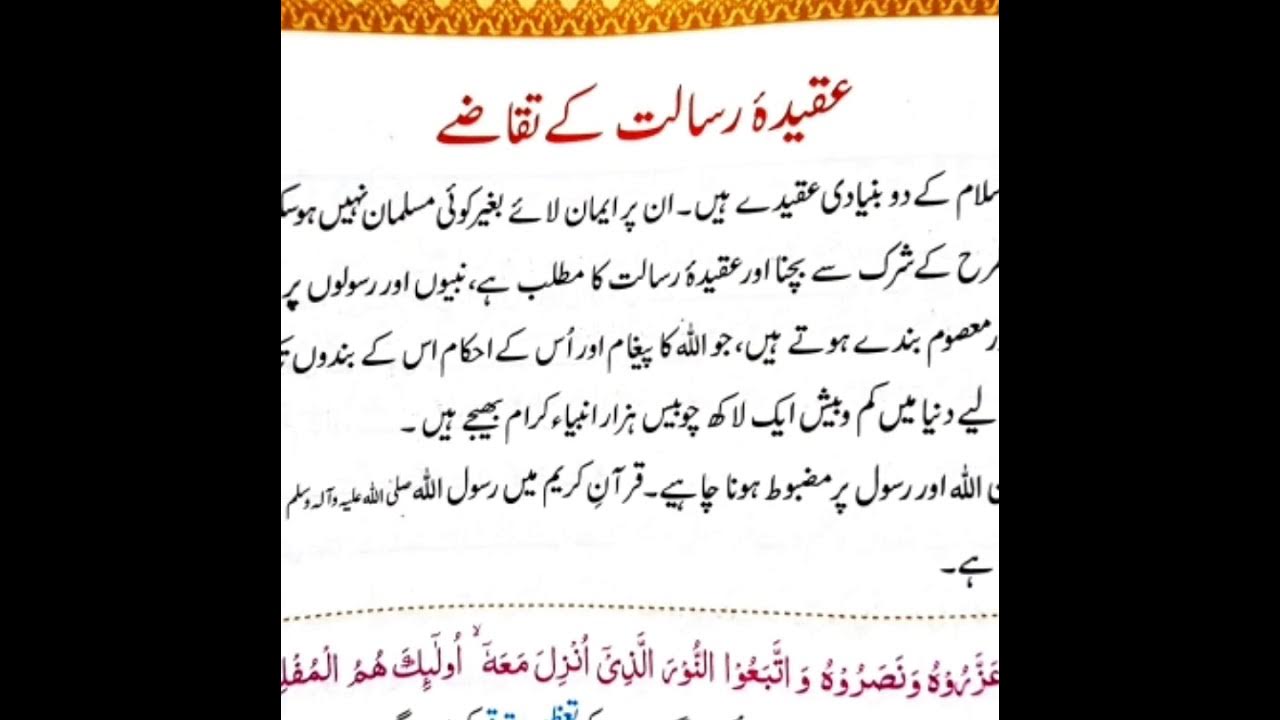 عقیدۂ رسالت کے تقاضے
سلام کے دو بنیادی عقیدے ہیں۔ ان پر ایمان لائے بغیر کوئی مسلمان نہیں ہوسک
رح کے شرک سے بچنا اور عقیدۂ رسالت کا مطلب ہے، نبیوں اور رسولوں پر
ر معصوم بندے ہوتے ہیں، جو اللہ کا پیغام اور اُس کے احکام اس کے بندوں تک
لیے دنیا میں کم و بیش ایک لاکھ چوبیس ہزار انبیاء کرام بھیجے ہیں ۔
اللہ اور رسول پر مضبوط ہونا چاہیے۔ قرآنِ کریم میں رسول اللہ صلی اللہ علیہ وآلہ وسلم
ہے۔
عَزَّرُوْهُ وَ نَصَرُوْهُ وَ اتَّبَعُوا النُّوْرَ الَّذِیْۤ اُنْزِلَ مَعَهٗۤ ۙ اُولٰٓىِٕكَ هُمُ الْمُفْلِ